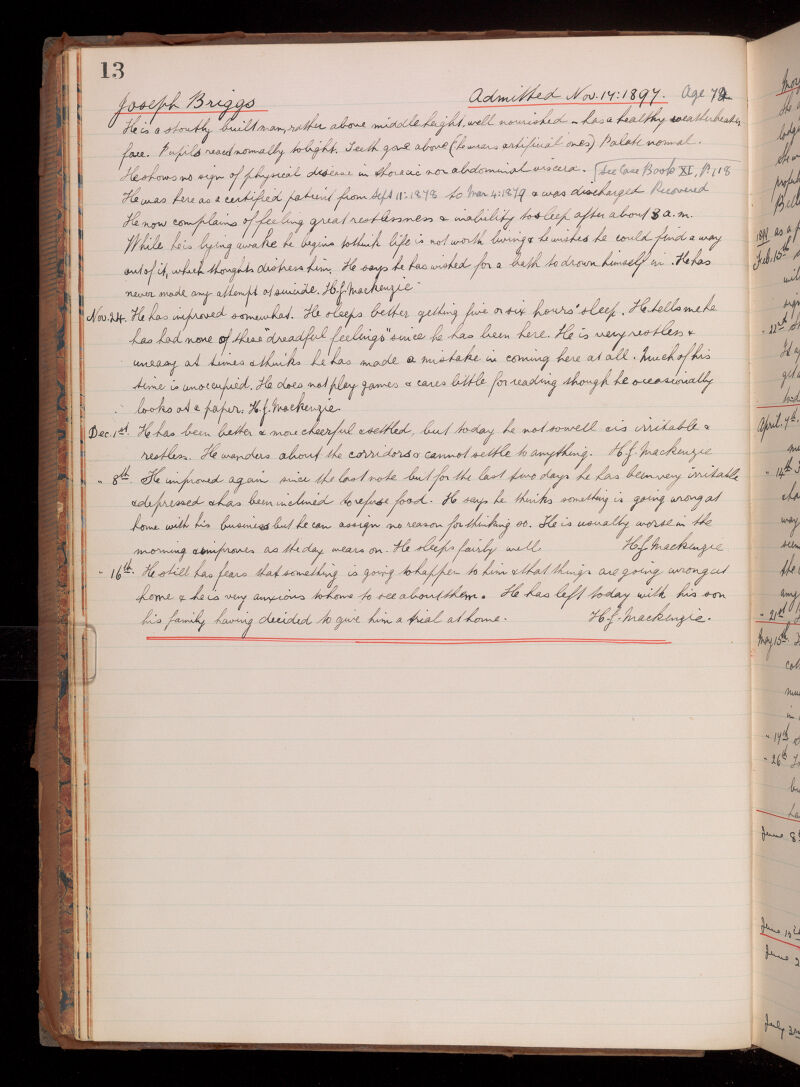 13
Joseph Briggs Admitted Nov. 17: 1897. Age 72
He is a stoutly built man, rather above middle height, well nourished – has a healthy weatherbeaten
face. Pupils react normally to light. Teeth gone above (he wears artificial ones) Palate normal.
He shows no sign of physical disease in thoracic nor abdominal viscera. [See Case Book XI, P. 118
He was here as a certified patient from Sept 11: 1878 to Mar 4: 1879 & was discharged Recovered
He now complains of feeling great restlessness & inability to sleep after about 3 a.m.
While he is lying awake he begins to think life is not worth living & he wishes he could find a way
out of it, which thoughts distress him. He says he has wished for a bath to drown himself in. He has
never made any attempt at suicide. H.f. Mackenzie
Nov. 24. He has improved somewhat. He sleeps better getting five or six hours' sleep. He tells me he
has had none of these "dreadful feelings" since he has been here. He is very restless &
uneasy at times & thinks he has made a mistake in coming here at all. Much of his
time is unoccupied. He does not play games & cares little for reading though he occasionally
looks at a paper. H.f. Mackenzie
Dec. 1st. He has been better & more cheerful & settled, but today he not so well & is irritable &
restless. He wanders about the corridors & cannot settle to anything. H.f. Mackenzie
" 8th. He improved again since the last note but for the last two days he has been very irritable
& depressed & has been inclined to refuse food. He says he thinks something is going wrong at
home with his business but he can assign no reason for thinking so. He is usually worse in the
morning & improves as the day wears on. He sleeps fairly well. H.f. Mackenzie
" 16th. He still has fears that something is going to happen to him & that things are going wrong at
home & he is very anxious to home to see about them. He has left today with his son
his family having decided to give him a trial at home. H.f. Mackenzie.
1898
Feb. 15th
" 22nd
April. 7th
" 14th
" 21st
May 15th
" 17th
" 26th
June 8th
June
June 2
July 3rd